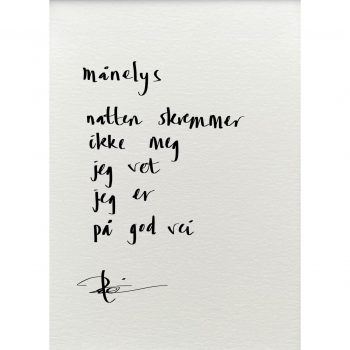 månelys
natten skremmer
ikke meg
jeg vet
jeg er
på god vei